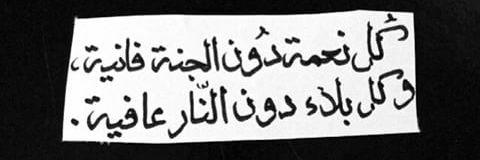 كُل نعمة دُون الجنة فانية،
وكل بلاء دون النّار عافية.